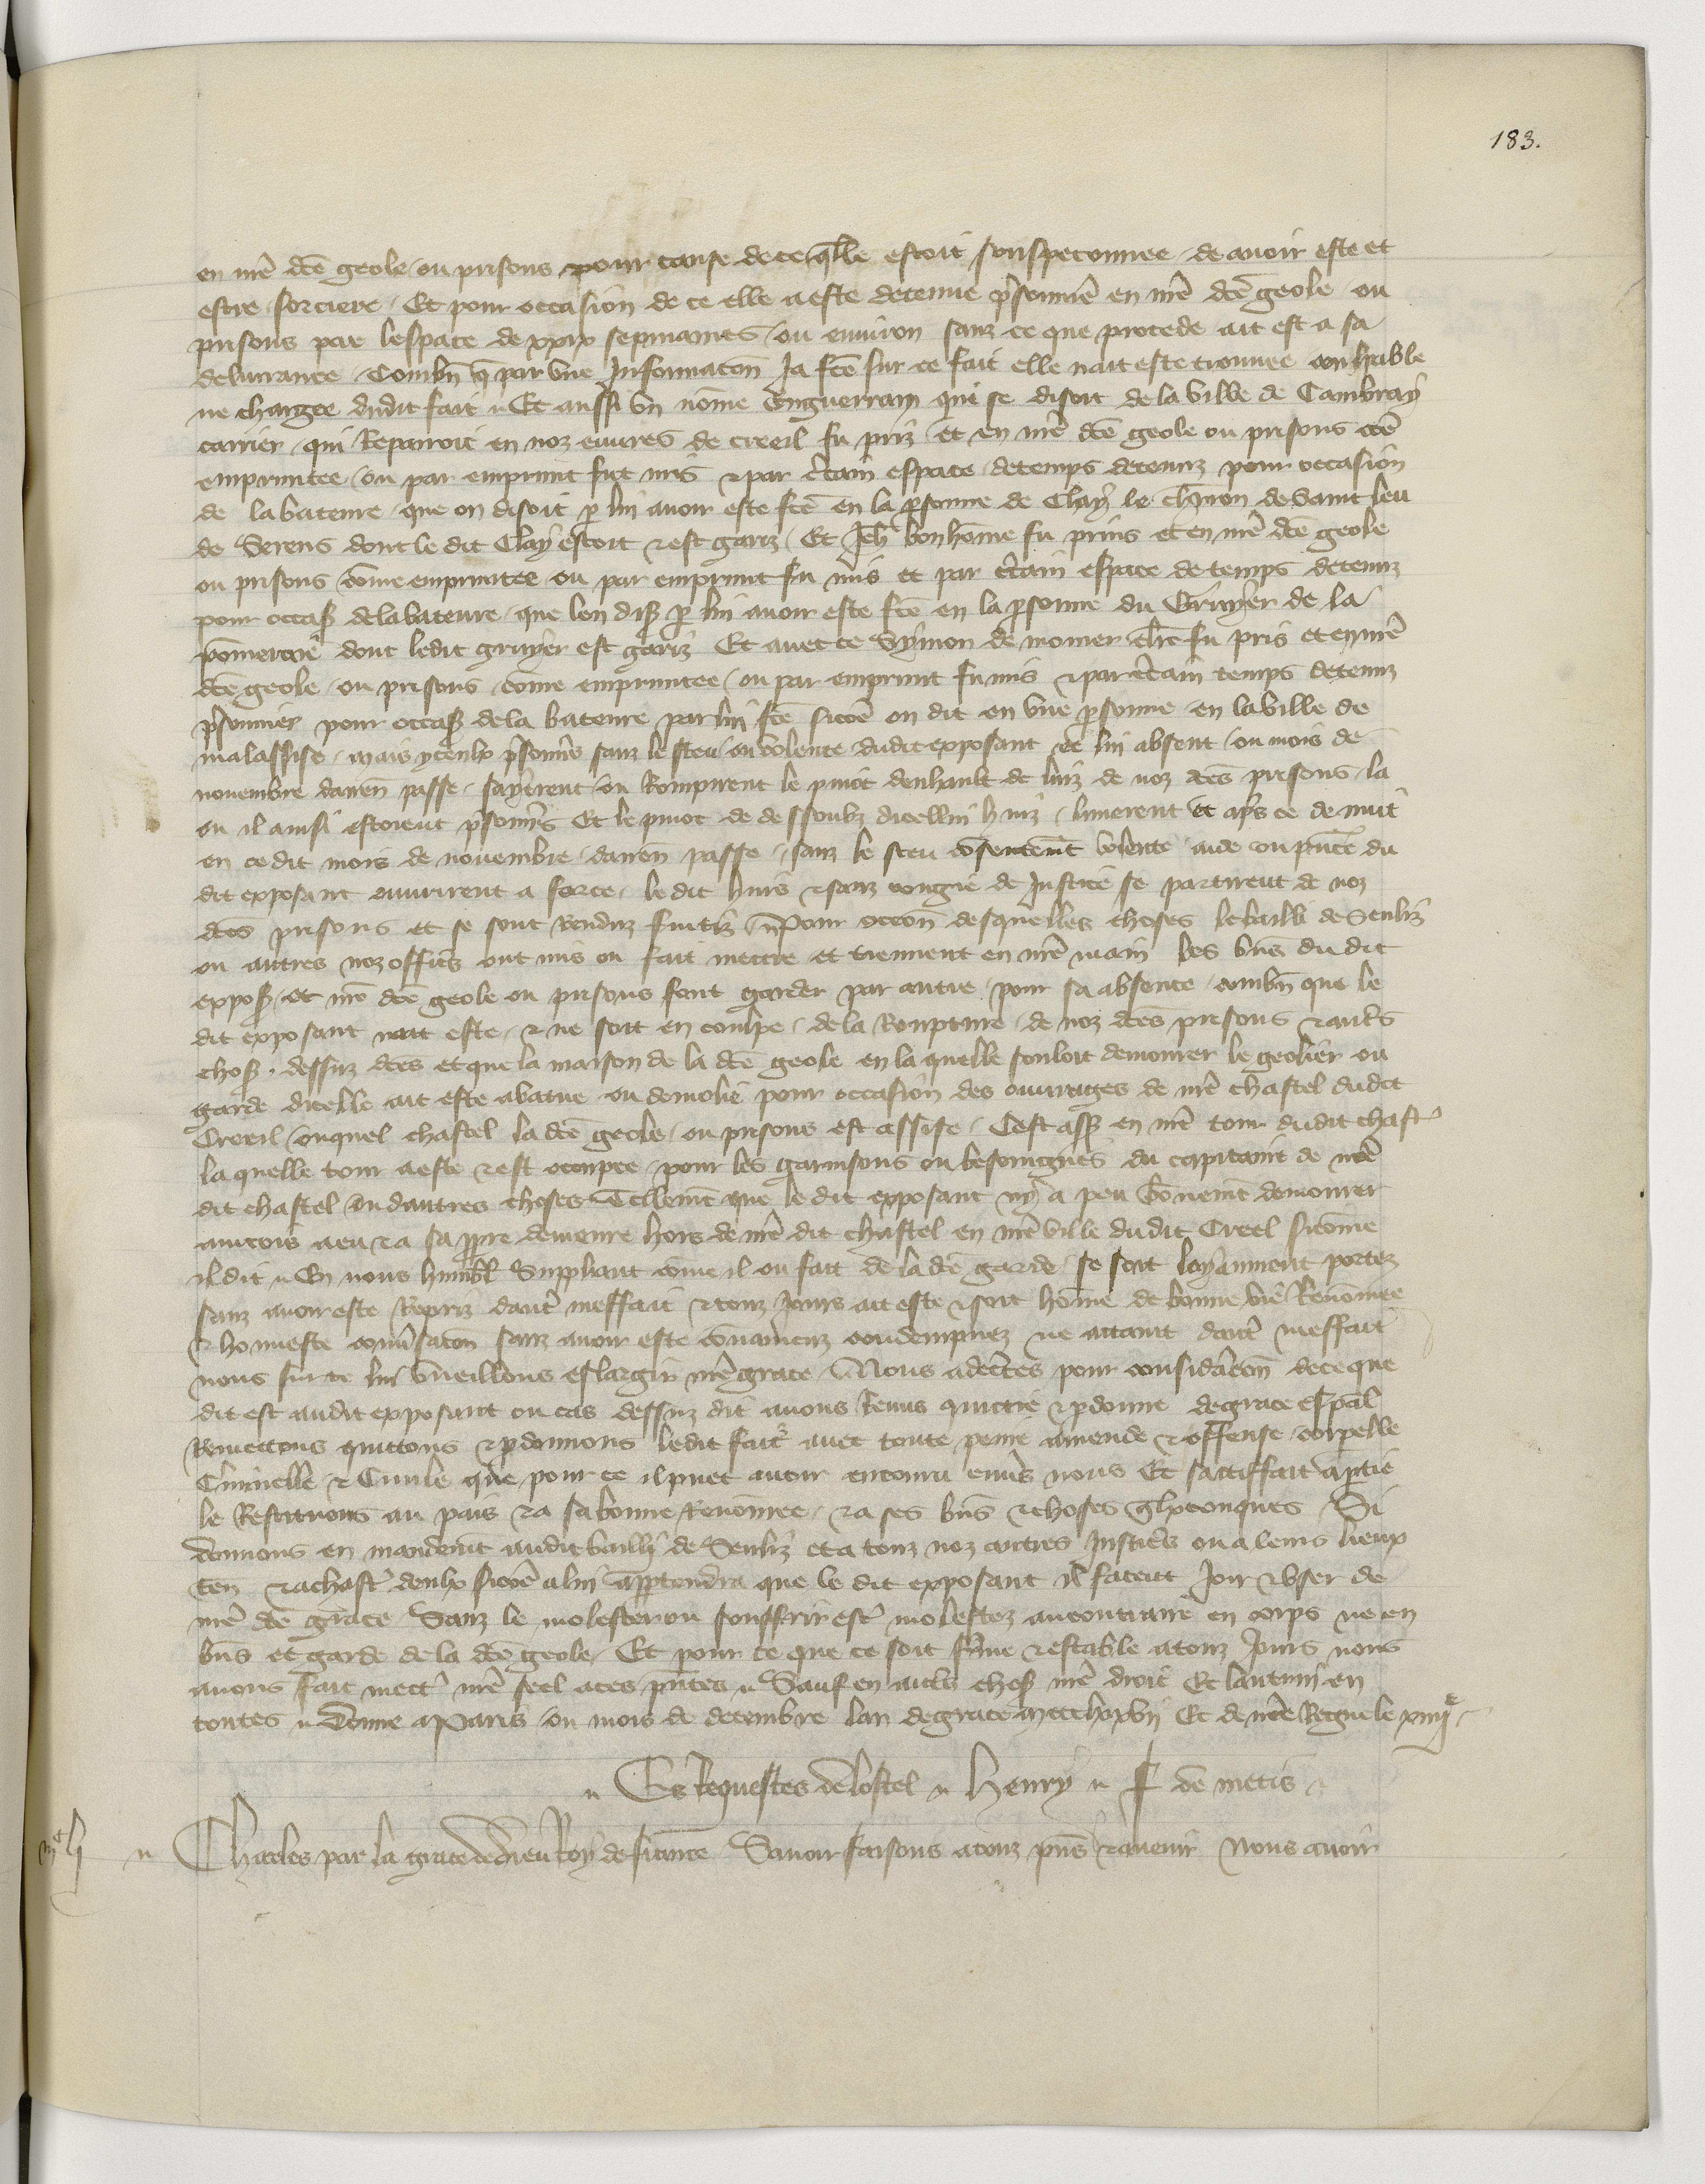 183.
en nr̃e dcẽ geole ou prisons pour cause de ce q̃lle estoit souspeconnee de avoir este et
estre sorciere Et pour occasion de ce elle a este detenue p̃sonnie͂ en nr̃e dcẽ geole ou
prisons par lespace de xxix sepmaines ou environ sanz ce que procede ait est a sa
delivrance Combn̄ q̃ par une Informacōn Ja fcẽ sur ce fait elle nait este trouvee coulpable
ne chargee dudit fait Et aussi un nōme Enguerran qui se disoit de la ville de Cambray
carrier qui Reparoit en noz euvres de creeil fu priz et en nr̃e dcẽ geole ou prisons cōe
empruntee ou par emprunt fut mis & par c̃tain espace de temps detenuz pour occasion
de la bateure que on disoit p̱ lui avoir este fcẽ en la p̱sonne de Clay le ch̃ron de Saint leu
de Serens dont le dit Clay estoit & est gariz Et Jeh̃ bonhōme fu prins et en nr̃e dcẽ geole
ou prisons cōme empruntee ou par emprunt fu mis et par c̃tain espace de temps detenuz
pour occas̃ de la bateure que len dis̃ p̱ lui avoir este fcẽ en la p̱sonne du Gruyer de la
pōmeroie dont ledit gruyer est gariz Et avec ce Symon de momer cl̃rc fu pris et en nr̃e
dcẽ geole ou prisons cōme empruntee ou par emprunt fu mis & par c̃tain temps detenuz
p̃sonnier pour occas̃ de la bateure par lui fcẽ sicōe on dit en une p̱sonne en la ville de
malassise mais yceulx p̃sonn̄s sanz le sceu ou volente dudit exposant et lui absent ou mois de
novembre dar̃en passe sayerent ou Rompirent le pivot denhault de luis de noz dcẽs prisons la
ou il ainsi estoient p̃sonn̄s Et le pivot de dessoubz dicellui huis limerent et ap̃s ce de nuit
en cedit mois de novembre dar̃en passe sanz le sceu cōsentem̄t volente aide ou pñce du
dit exposant ouvrirent a force le dit huis & sanz congie de Justice se partirent de noz
dcẽs prisons et se sont Renduz fuitiz Pour occōn desquelles choses le bailli de Senliz
ou autres noz offic̃s ont mis ou fait mettre et tiennent en nr̃e main les bn̄s du dit
expos̃ et nr̃e dcẽ geole ou prisons font garder par autre pour sa absence combn̄ que le
dit exposant nait este & ne soit en coulpe de la Roupture de noz dcẽs prisons & autr̃s
chos̃ dessuz dcẽs et que la maison de la dcẽ geole en la quelle souloit demourer le geolier ou
garde dicelle ait este abatue ou demolie pour occasion des ouvrages de nr̃e chastel dudit
Creeil ouquel chastel la dcẽ geole ou prisons est assise Cest ass̃ en nr̃e tour dudit chast̃
la quelle tour a este & est occupee pour les garnisons ou besoingnes du capitaine de nr̃e
dit chastel ou dautres choses Tellem̄t que le dit exposant ny a peu bōnem̄t demourer
aincois a eu & a sa pp̃re demeure hors de nr̃e dit chastel en nr̃e ville dudit Creel sicōme
il dit En nous humbl̃ Suppliant cōme il ou fait de la dcẽ garde se soit loyaument portez
sanz avoir este Repriz daut̃ meffait & touz Jours ait este & soit hōme de bonne vie Renōmee
& honneste conv̄sacōn sanz avoir este cōvaincuz condempnez ne attaint daut̃ meffait
nous sur ce lui vueillons eslargir nr̃e grace Nous adecertes pour considac̃on de ce que
dit est audit exposant ou cas dessuz dit avons Remis quictie & p̱donne de grace esp̃al
Remettons quittons & p̱donnons ledit fait avec toute peine amende & offense corpelle
Criminelle & Civile que pour ce il puet avoir encouru env̄s nous Et satiffait a partie
le Restituons au pais & a sa bonne Renōmee & a ses bn̄s & choses q̃lxconques Si
donnons en mandem̄t audit bailly de Senliz et a touz noz autres Justic̃s ou a leurs lieux
ten̄ & a chast̃ deulx sicōe a lui app̱tendra que le dit exposant Il facent Joir & user de
nr̃e dcẽ grace Sanz le molester ou souffrir est̃ molestez au contraire en corps ne en
bn̄s et garde de la dcẽ geole Et pour ce que ce soit f̃me & estable a touz Jours nous
avons fait mectr̃ nr̃e seel a ces pñtes Sauf en autr̃s chos̃ nr̃e droit Et lautrui en
toutes Donne a Paris ou mois de decembre lan de grace mccclxxvij Et de nr̃e Regne le xiiij͂e
Es Requestes de lostel Henry J de metis
Charles par la grace de dieu Roy de france Savoir faisons a touz pñs & avenir Nous avoir